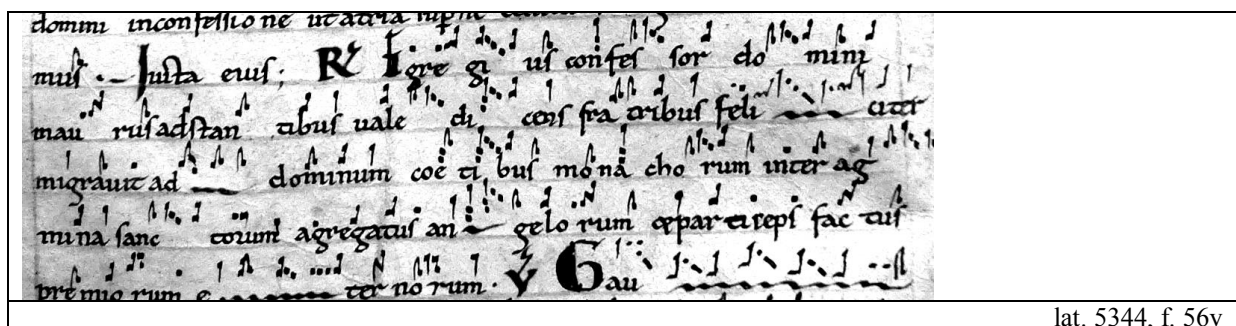 domini inconfessione ut atria
mus. Iusta eius; R Egre gi us confes sor do mini
mau rus adstan tibus uale di cens fra tribus feli citer
migrauit ad dominum coe ti bus mo na cho rum inter ag
mi na sanc torum agregatus an gelo rum
pre mio rum e ter no rum. V Gau
lat. 5344, f. 56v